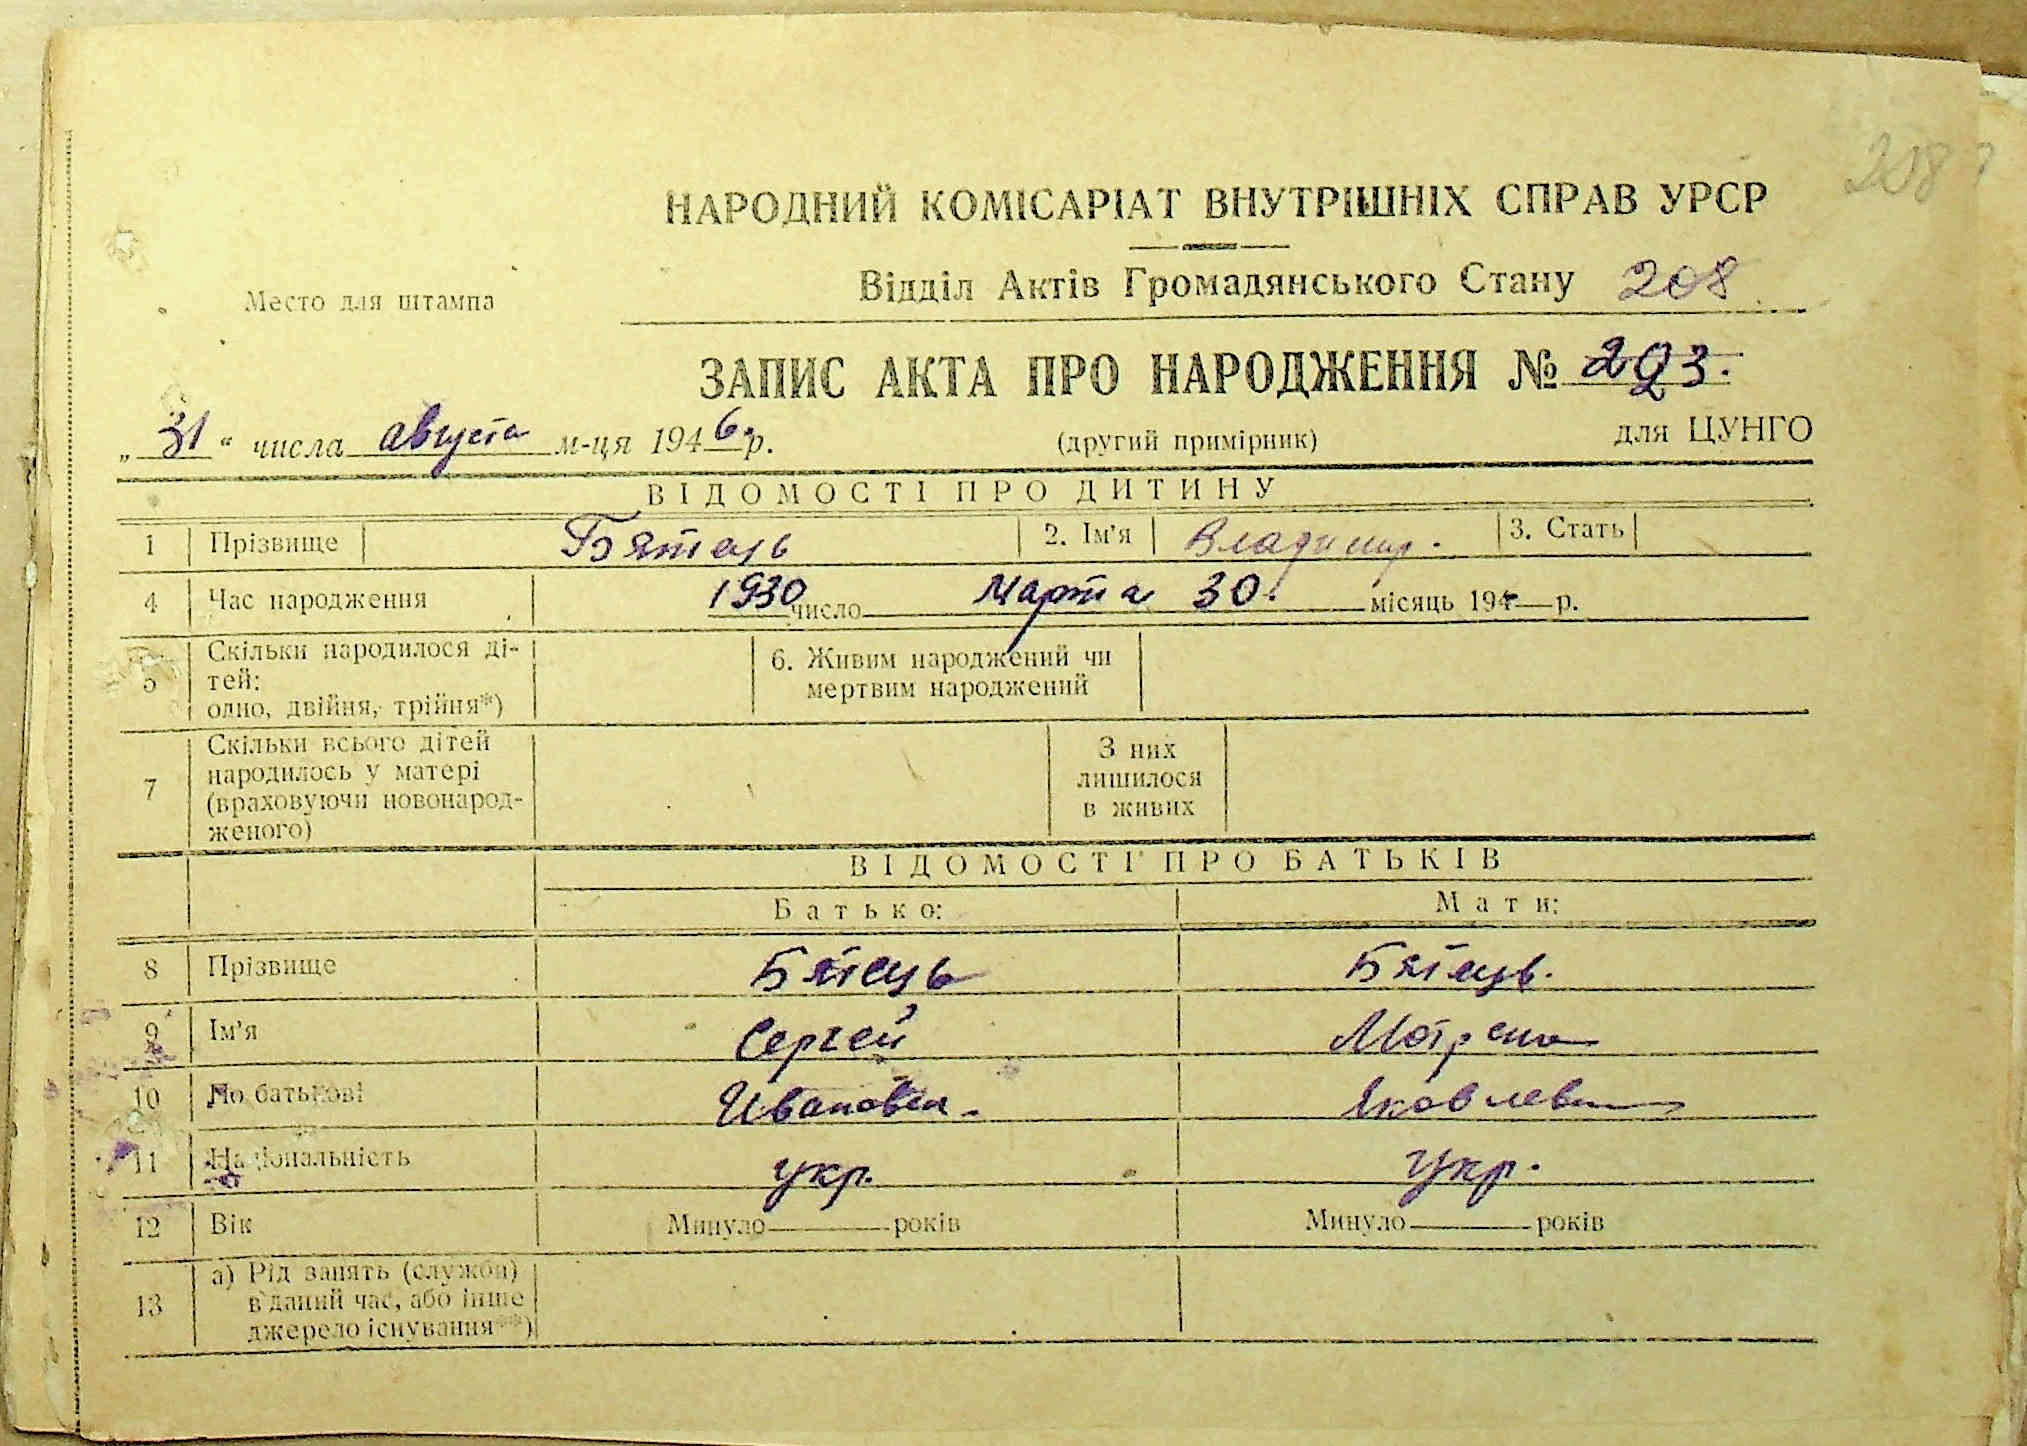 208
НАРОДНИЙ КОМІСАРІАТ ВНУТРІШНІХ СПРАВ УРСР
Место для штампа
Відділ Актів Громадянського Стану 208
ЗАПИС АКТА ПРО НАРОДЖЕННЯ № 293.
„31“ числа августа м-ця 1946 р. (другий примірник) для ЦУНГО
ВІДОМОСТІ ПРО ДИТИНУ
1 Прізвище Бятець 2. Ім'я Владимир. 3. Стать
4 Час народження 1930 число Марта 30. місяць 194 р.
5 Скільки народилося ді-
тей:
одно, двійня, трійня*)
6. Живим народжений чи
мертвим народжений
7 Скільки всього дітей
народилось у матері
(враховуючи новонарод-
женого)
З них
лишилося
в живих
ВІДОМОСТІ ПРО БАТЬКІВ
Батько: Мати:
8 Прізвище Бятець Бятець.
9 Ім'я Сергей Мотрена
10 По батькові Иванович. Яковлевна
11 Національність укр. Укр.
12 Вік Минуло років Минуло років
13 а) Рід занять (служби)
в даний час, або інше
джерело існування**)